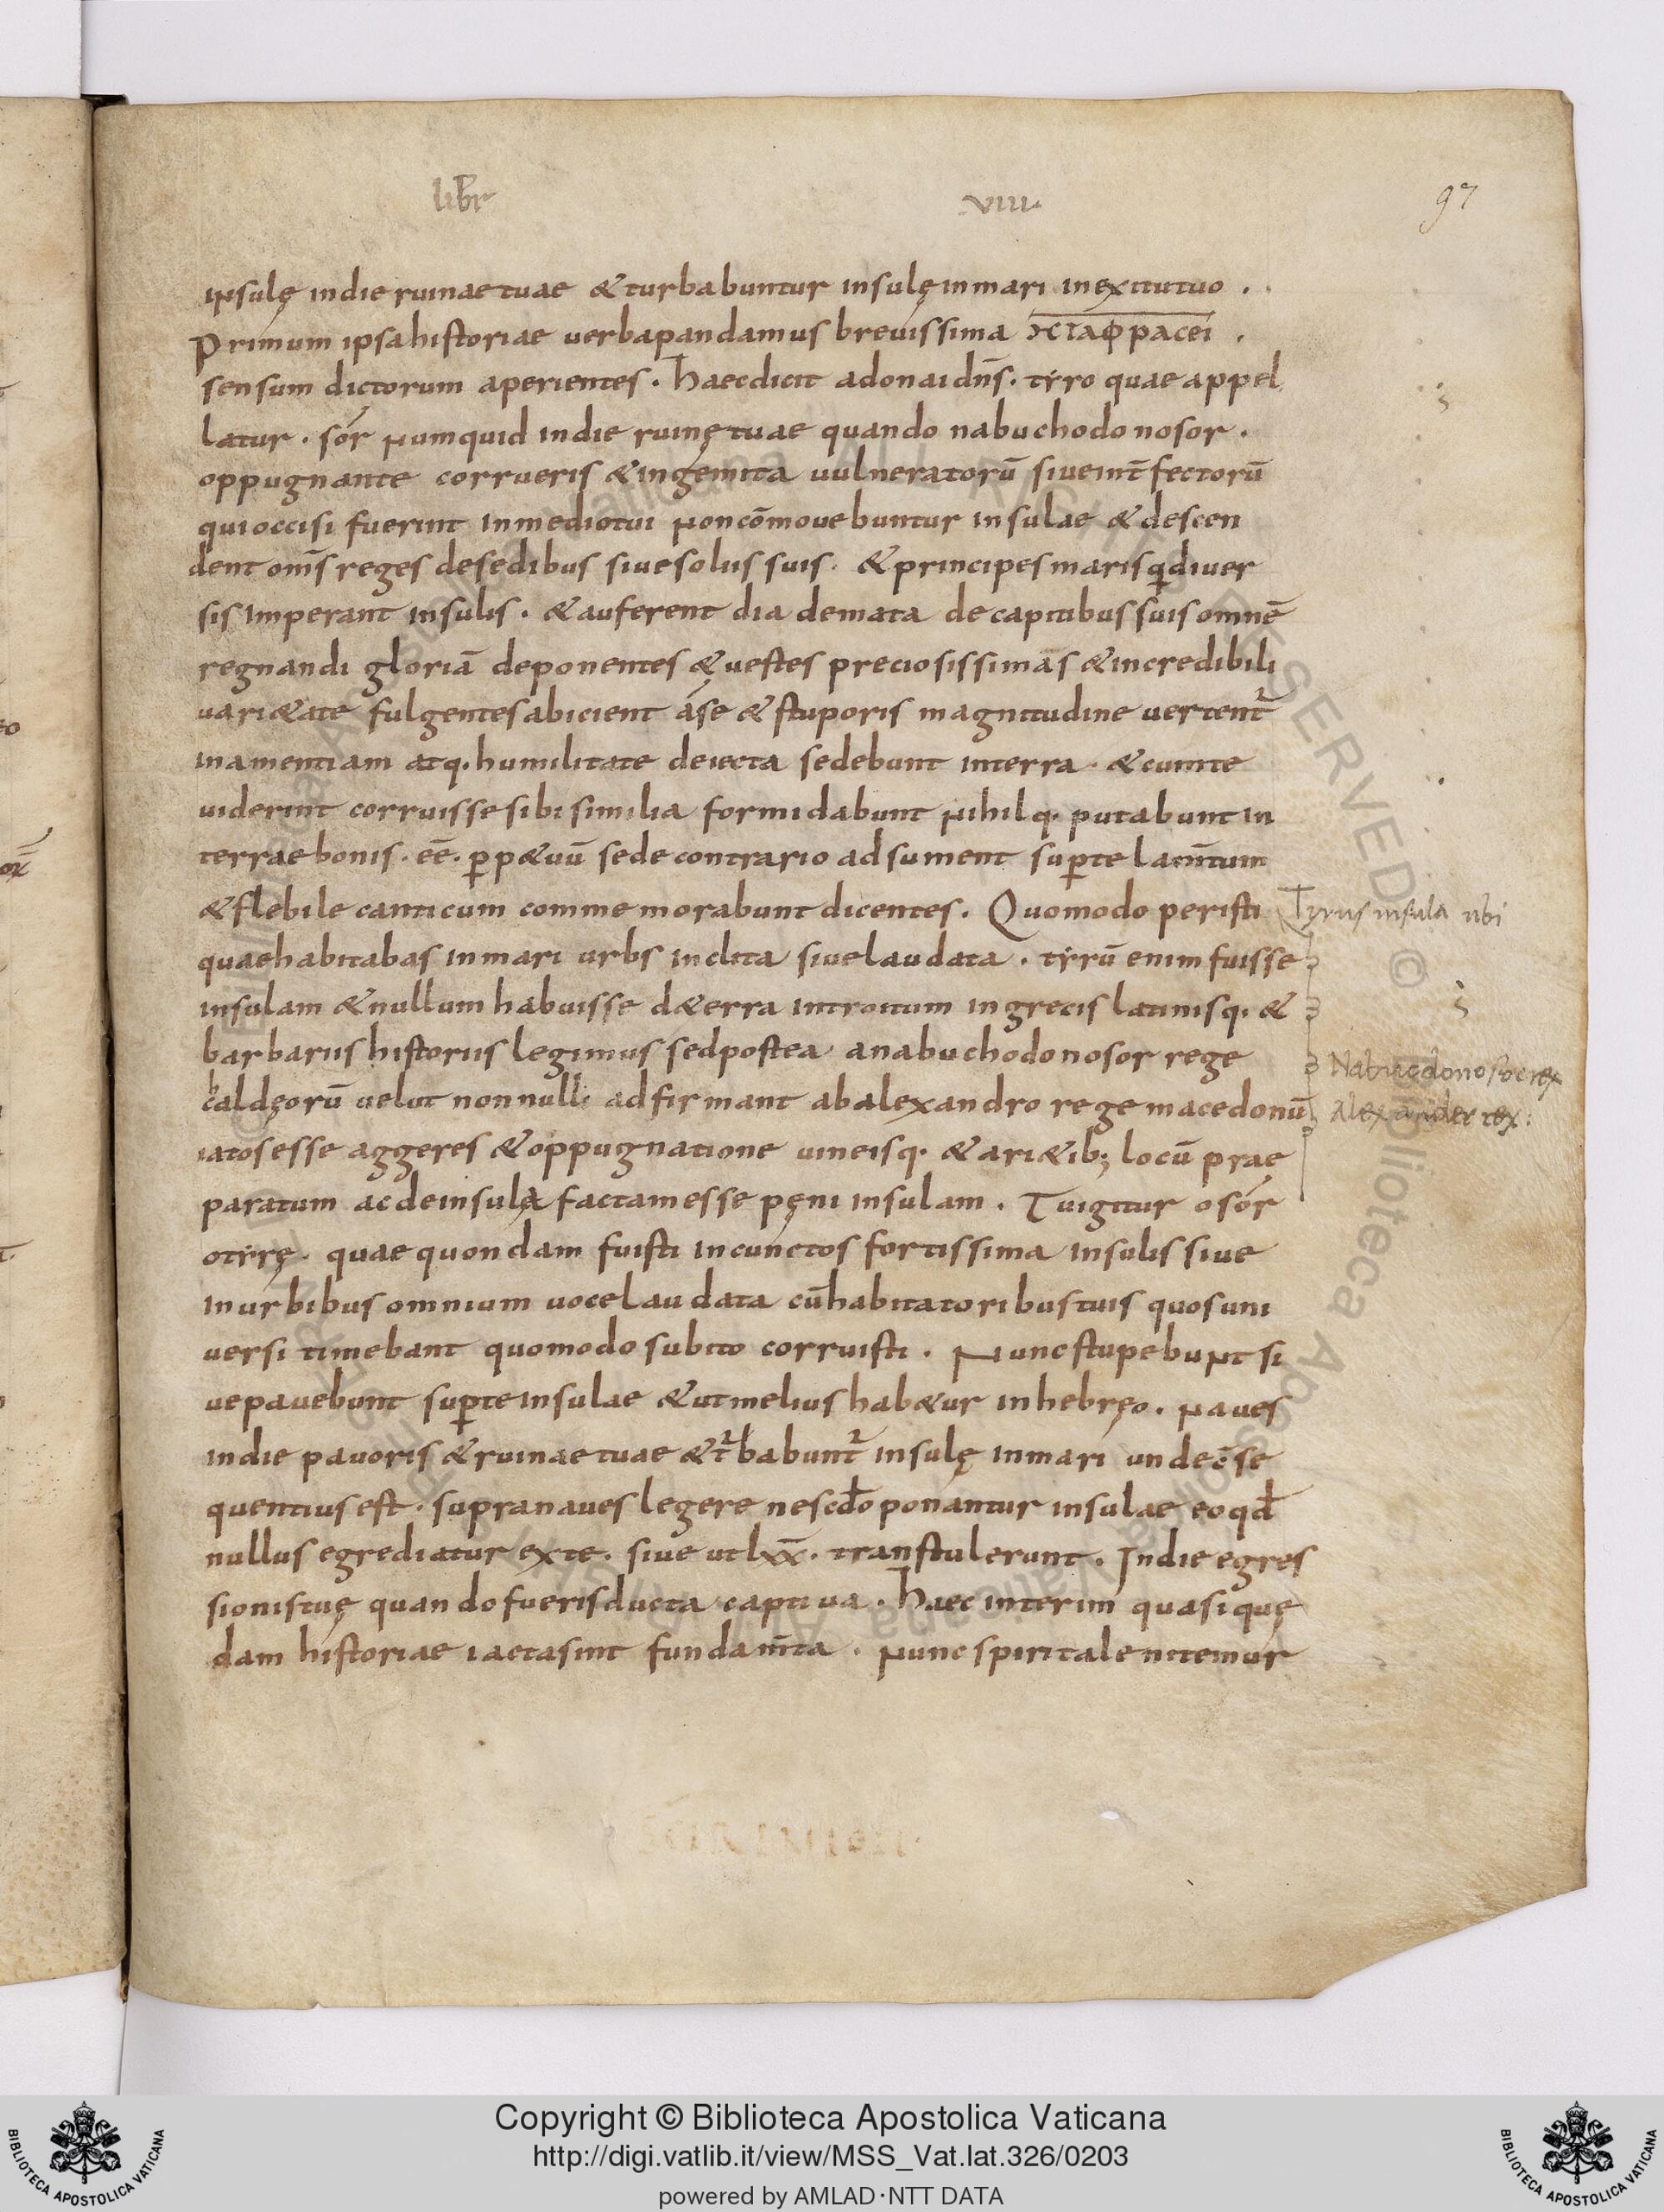 libr VIIII.
97
insulę indie ruinae tuae & turbabuntur insulę inmari inexitutuo .
Primum ipsa historiae uerba pandamus breuissima
sensum dictorum aperientes. haec dicit adonai dn̄s. tyro quae appel
latur. sór Numquid indie ruinę tuae quando nabuchodonosor.
oppugnante corrueris & ingemita uulneratorū siue int̄fectorū
qui occisi fuerint inmedio tui Non cōmouebuntur insulae & descen
dent om̄s reges desedibus siue soliis suis. & principes maris qi diuer
sis imperant insulis. & auferent diademata decapitibus suis omnē
regnandi gloriā deponentes & uestes preciosissimas & incredibili
uari&ate fulgentes abicient áse & stuporis magnitudine uertent᷑
inamentiam atq. humilitate deiecta sedebunt interra. & cumte
uiderint corruisse sibi similia formidabunt Nihilq. putabunt in
terrae bonis. eē. ꝑp&uū sed econtrario adsument suꝑte lam̄tum
& flebile canticum commemorabunt dicentes. Quomodo peristi
Tyrus insula ubi
quae habitabas inmari urbs inclita siue laudata. tyrū enim fuisse
insulam & nullum habuisse d&erra introitum ingrecis latinisq. &
barbariis historiis legimus sed postea anabuchodonosor rege
Nabucodonosor rex
caldęorū uelut nonnulli adfirmant abalexandro rege macedonū
alexander rex:
iatos esse aggeres & oppugnatione uineisq. & ari&ib; locū prae
paratum ac deinsula factam esse pęni insulam. Tu igitur o sór
o tyrę. quae quondam fuisti incunctos fortissima insulis siue
inurbibus omnium uoce laudata cū habitatoribus tuis quos uni
uersi timebant quomodo subito corruisti. Nunc stupebunt si
ue pauebunt suꝑte insulae & ut melius hab&ur inhebręo. Naues
indie pauoris & ruinae tuae & t᷑babunt᷑ insulę inmari unde cōse
quentius est. supra naues legere nescđo ponantur insulae eo qđ
nullus egrediatur exte. siue ut lxx̄. transtulerunt. Indie egres
sionis tuę quando fueris ducta captiua. haec interim quasi quę
dam historiae iacta sint fundam̄ta. Nunc spiritale nitemur
Copyright © Biblioteca Apostolica Vaticana
http://digi.vatlib.it/view/MSS_Vat.lat.326/0203
powered by AMLAD·NTT DATA
BIBLIOTECA APOSTOLICA VATICANA
BIBLIOTECA APOSTOLICA VATICANA